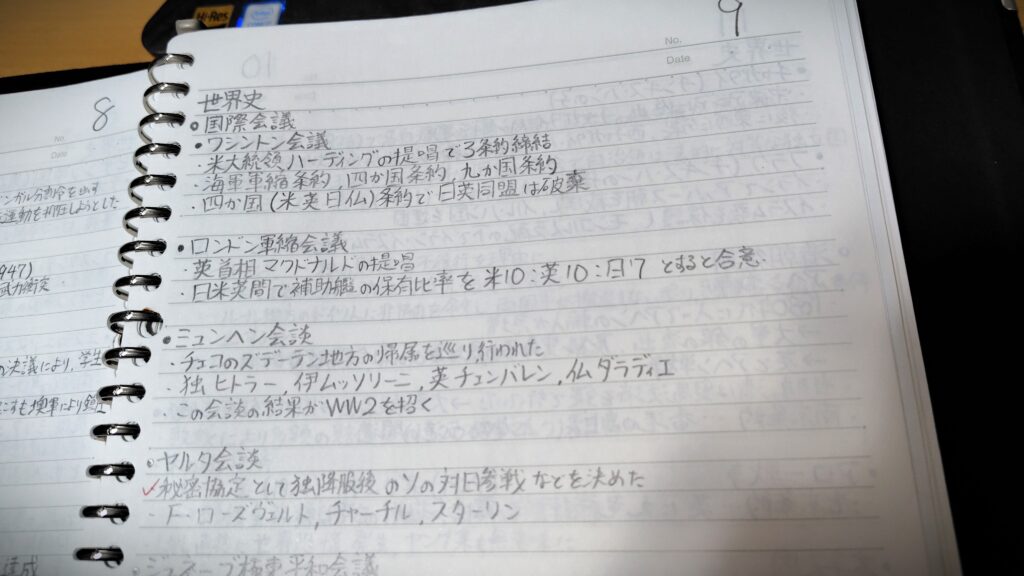 Hi-Res
8
No.
Date
ンガル分割令を出す
運動を抑圧しようとした
947)
武力衝突
決議により,学生
達成
9
No.
Date
世界史
•国際会議
•ワシントン会議
・米大統領ハーディングの提唱で3条約締結
・海軍軍縮条約,四か国条約,九か国条約
・四か国(米英日仏)条約で日英同盟は破棄
•ロンドン軍縮会議
・英首相マクドナルドの提唱
・日米英間で補助艦の保有比率を米10:英10:日7とすると合意.
•ミュンヘン会談
・チェコのズデーテン地方の帰属を巡り行われた
・独ヒトラー,伊ムッソリーニ,英チェンバレン,仏ダラディエ
・この会談の結果がWW2を招く
•ヤルタ会談
✓秘密協定として独降服後のソの対日参戦などを決めた
・F・ローズヴェルト,チャーチル,スターリン
•ジュネーブ極東平和会議